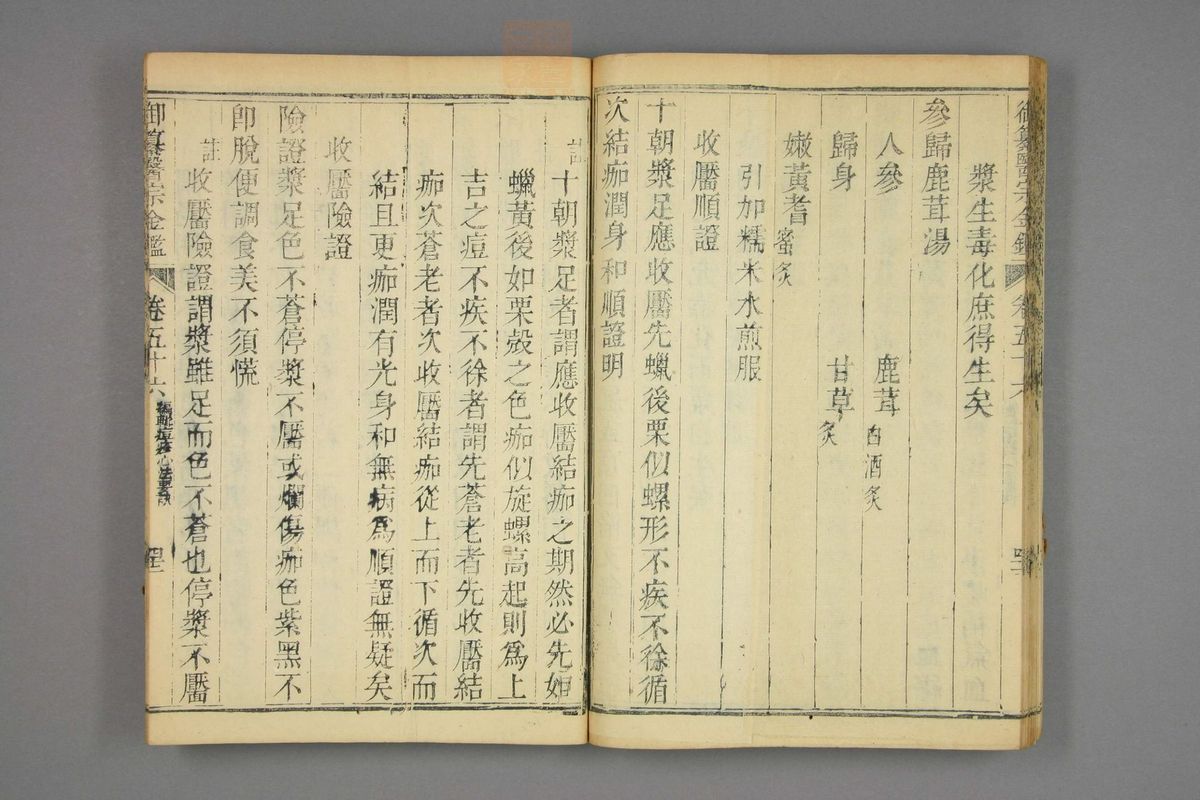 漿生毒化庶得生矣
參歸鹿茸湯
人參 鹿茸白酒炙
歸身 甘草炙
嫩黃耆蜜炙
引加糯米水煎服
收靨順證
十朝漿足應收靨先蠟後栗似螺形不疾不徐循
次結痂潤身和順證明
註十朝漿足者謂應收靨結痂之期然必先如
蠟黃後如栗殼之色痂似旋螺高起則爲上
吉之痘不疾不徐者謂先蒼老者先收靨結
痂次蒼老者次收靨結痂從上而下循次而
結且更痂潤有光身和無病爲順證無疑矣
收靨險證
險證漿足色不蒼停漿不靨或爛傷痂色紫黑不
卽脫便調食美不須慌
註收靨險證謂漿雖足而色不蒼也停漿不靨
御纂醫宗金鑑 卷五十六 編輯痘疹心法要訣